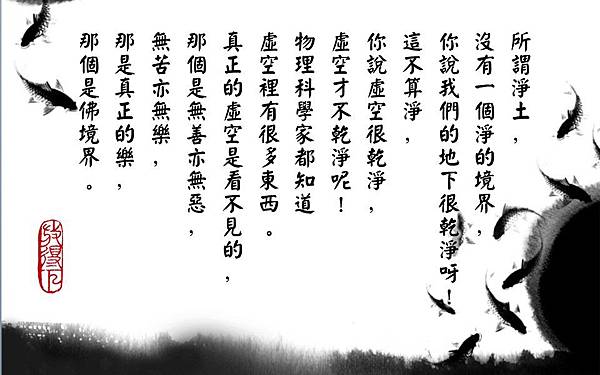 所謂淨土，
沒有一個淨的境界，
你說我們的地下很乾淨呀！
這不算淨，
你說虛空很乾淨，
虛空才不乾淨呢！
物理科學家都知道
虛空裡有很多東西。
真正的虛空是看不見的，
那個是無善亦無惡，
無苦亦無樂，
那是真正的樂，
那個是佛境界。
放得下